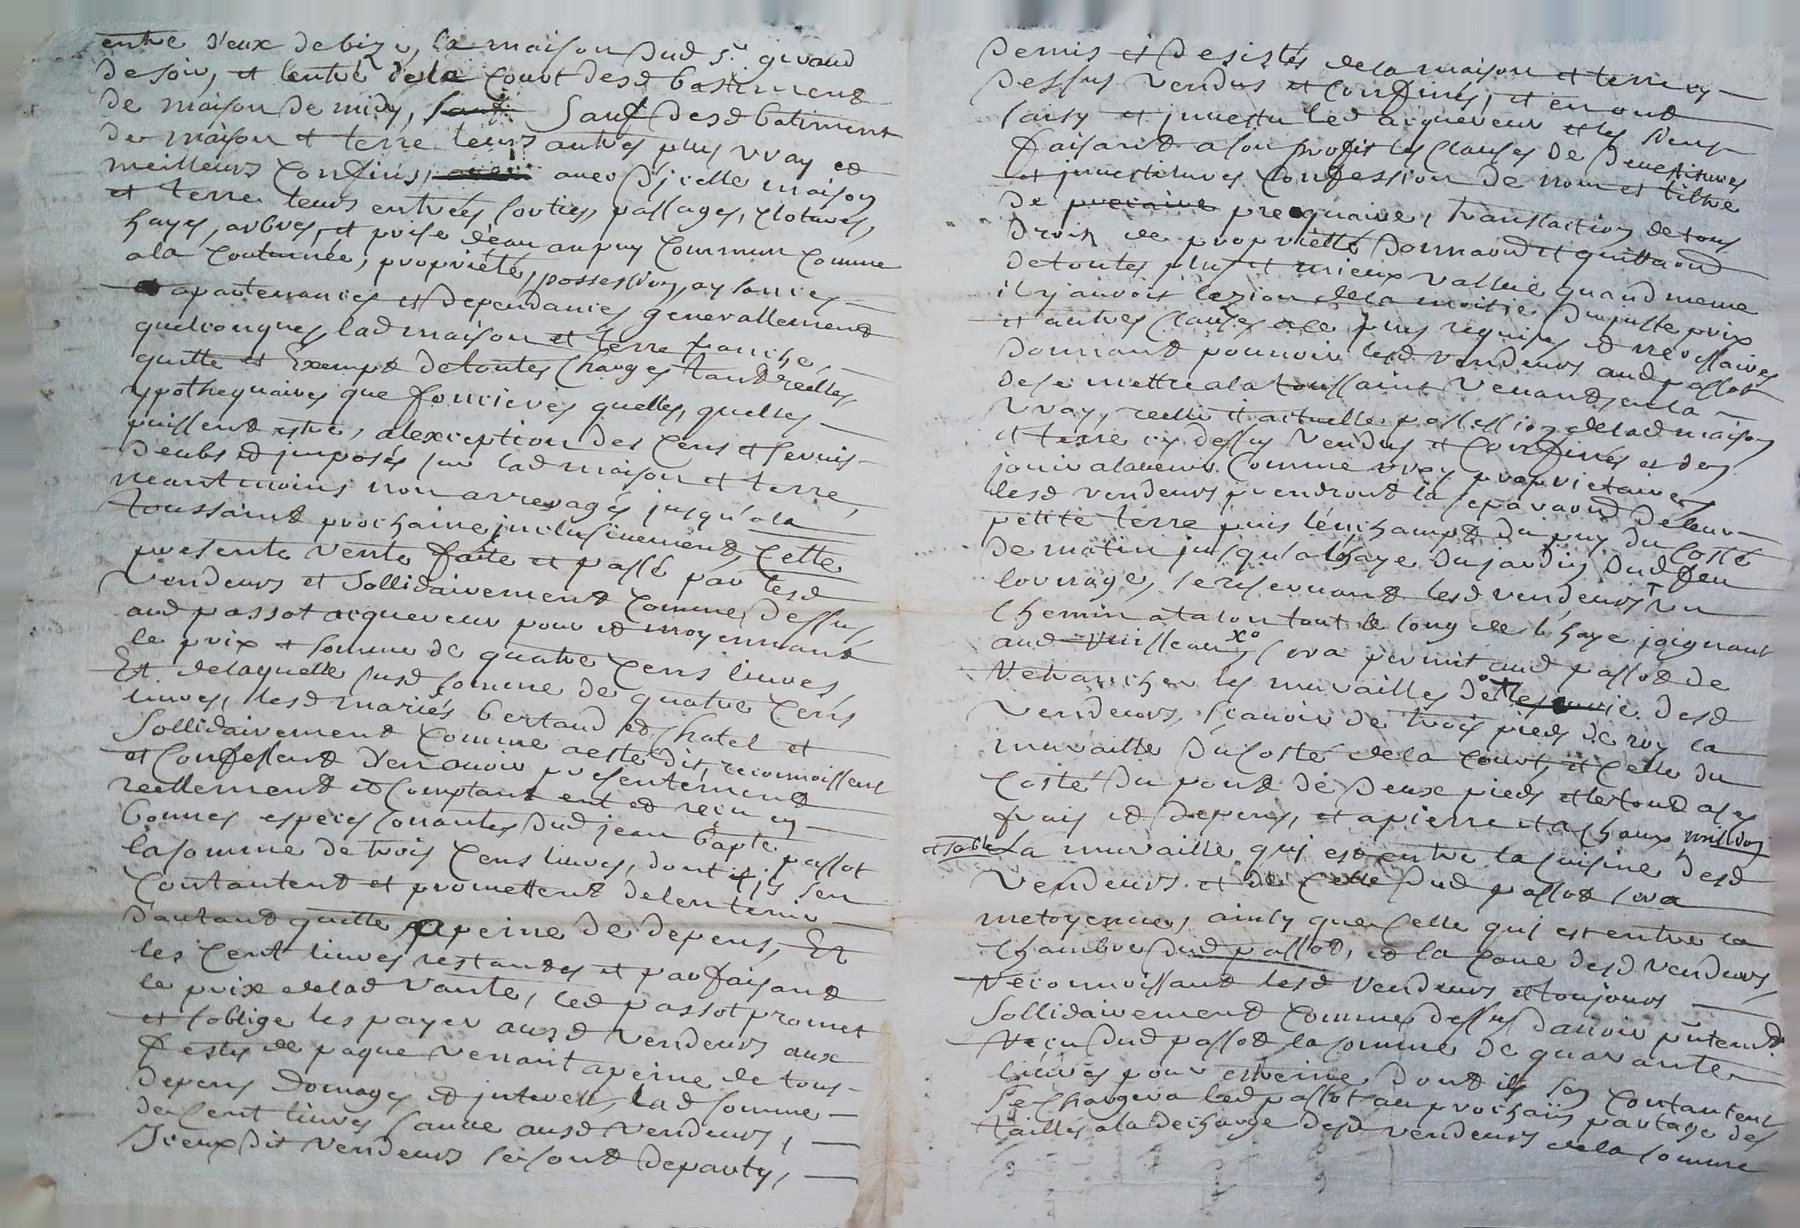 entre deux de bize, la maison dud Sr. givaud
de soir, et lentré de la Court desd bastiment
de maison de midy, sauf Sauf desd batiment
de maison et terre leurs autres plus vray et
meilleurs Confins, avec d'jcelle maison
et terre leurs entrées sorties, passages, clotures,
hayes, arbres, et prise d'eau au puy Commun Comme
a la Coutumée, propriété, possession, aysances
apartenances et dependances generallement
quelconques, lad maison et terre franche,
quitte et Exempt de toutes Charges tant reelles,
ypothequaires que foncieres quelles, quelles
puissent estre, a lexception des Cens et servis
deubs et jmposés sur lad maison et terre,
neantmoins non arreragés jusqu'a la
toussaint prochaine jnclusivement, Cette
presente vente faite et passé par lesd
Vendeurs et Sollidairement Comme dessus,
aud passot acquereur pour et moyennant
le prix et somme de quatre Cens livres,
Et de laquelle susd somme de quatre Cens
livres, lesd mariés bertaud et Chatel et
Sollidairement Comme a esté dit, reconnoissent
et Confessent d'en avoir presentement
reellement et Comptant eut et reçu en
bonnes especes Courantes dud jean bapte. passot
la somme de trois Cens livres, dont ils sen
Contantent et promettent de len tenir
d'autant quitte a peine de depens, Et
les Cent livres restantes et parfaisant
le prix de lad vante, led passot promet
et soblige les payer ausd vendeurs aux
festes de paque venant a peine de tous
depens domages et jnterests, lad somme
de Cent livres sauve ausd vendeurs,
Jceux dit vendeurs se sont departy,
Demis et desistés de la maison et terre cy
dessus vendus et Confinés, et en ont
saisy et jnvestu led acquereur et les siens
faisant a son profit les Clauses de devestitures
et jnvestitures Confession de nom et tiltre
de precaire prequaire, translaction de tous
droits de propriétté donnaond et quittaond
de toutes plus et mieux vallue quand meme
il y auroit lezion de la moitie du juste prix
et autres Clauses a ce plus requises et necessaires
donnant pouvoir lesd vendeurs aud passot
de se mettre a la toussaint venant, en la
vray, reelle et actuelle possession de lad maison
et terre cy dessus vendus et Confinés et den
jouir a lavenir Comme vray proprietaire
lesd vendeurs prendront la separaond de leur
petite terre puis léuchamp du puy du Costé
de matin jusqu'a lhaye du jardin dud feu
louvrage, se reservant lesd vendeurs Un
Chemin a talon tout le long de lhaye joignant
aud Ruisseau, xo sera permit aud passot de
Retrancher les murailles desd
Vendeurs, scavoir de trois pieds de roy la
muraille du Costé de la Court, et Celle du
Costé du pont de deux pieds et le tout a ses
frais et depens, et a pierre et a Chaux
et sable La muraille qui est entre la cuisine desd
Vendeurs et de Celle dud passot sera
metoyenner, ainsy que Celle qui est entre la
Chambre dud passot, et la Cave desd vendeurs,
Reconnoissant lesd Vendeurs et toujours
Sollidairement Comme dessus davoir pntemt.
Reçu dud passot la somme de quarante
livres pour etreine dont ils sen Contantent
se Chargera led passot au prochain partage des
tailles a la decharge desd vendeurs de la somme